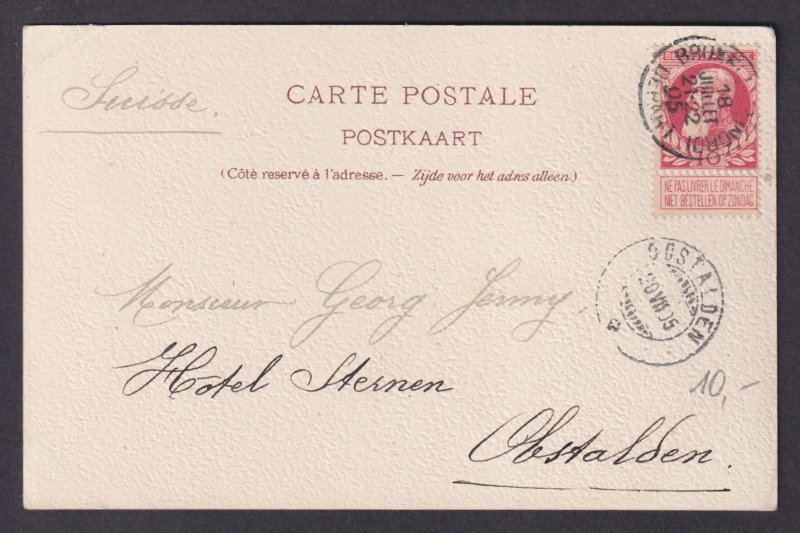 Suisse.
CARTE POSTALE
POSTKAART
(Côté reservé à l'adresse. — Zijde voor het adres alleen.)
18
JUILLET
21-22
05
NE PAS LIVRER LE DIMANCHE
NIET BESTELLEN OP ZONDAG
OBSTALDEN
20 VII 05
Monsieur Georg Jenny,
Hôtel Sternen
Obstalden.
10,-